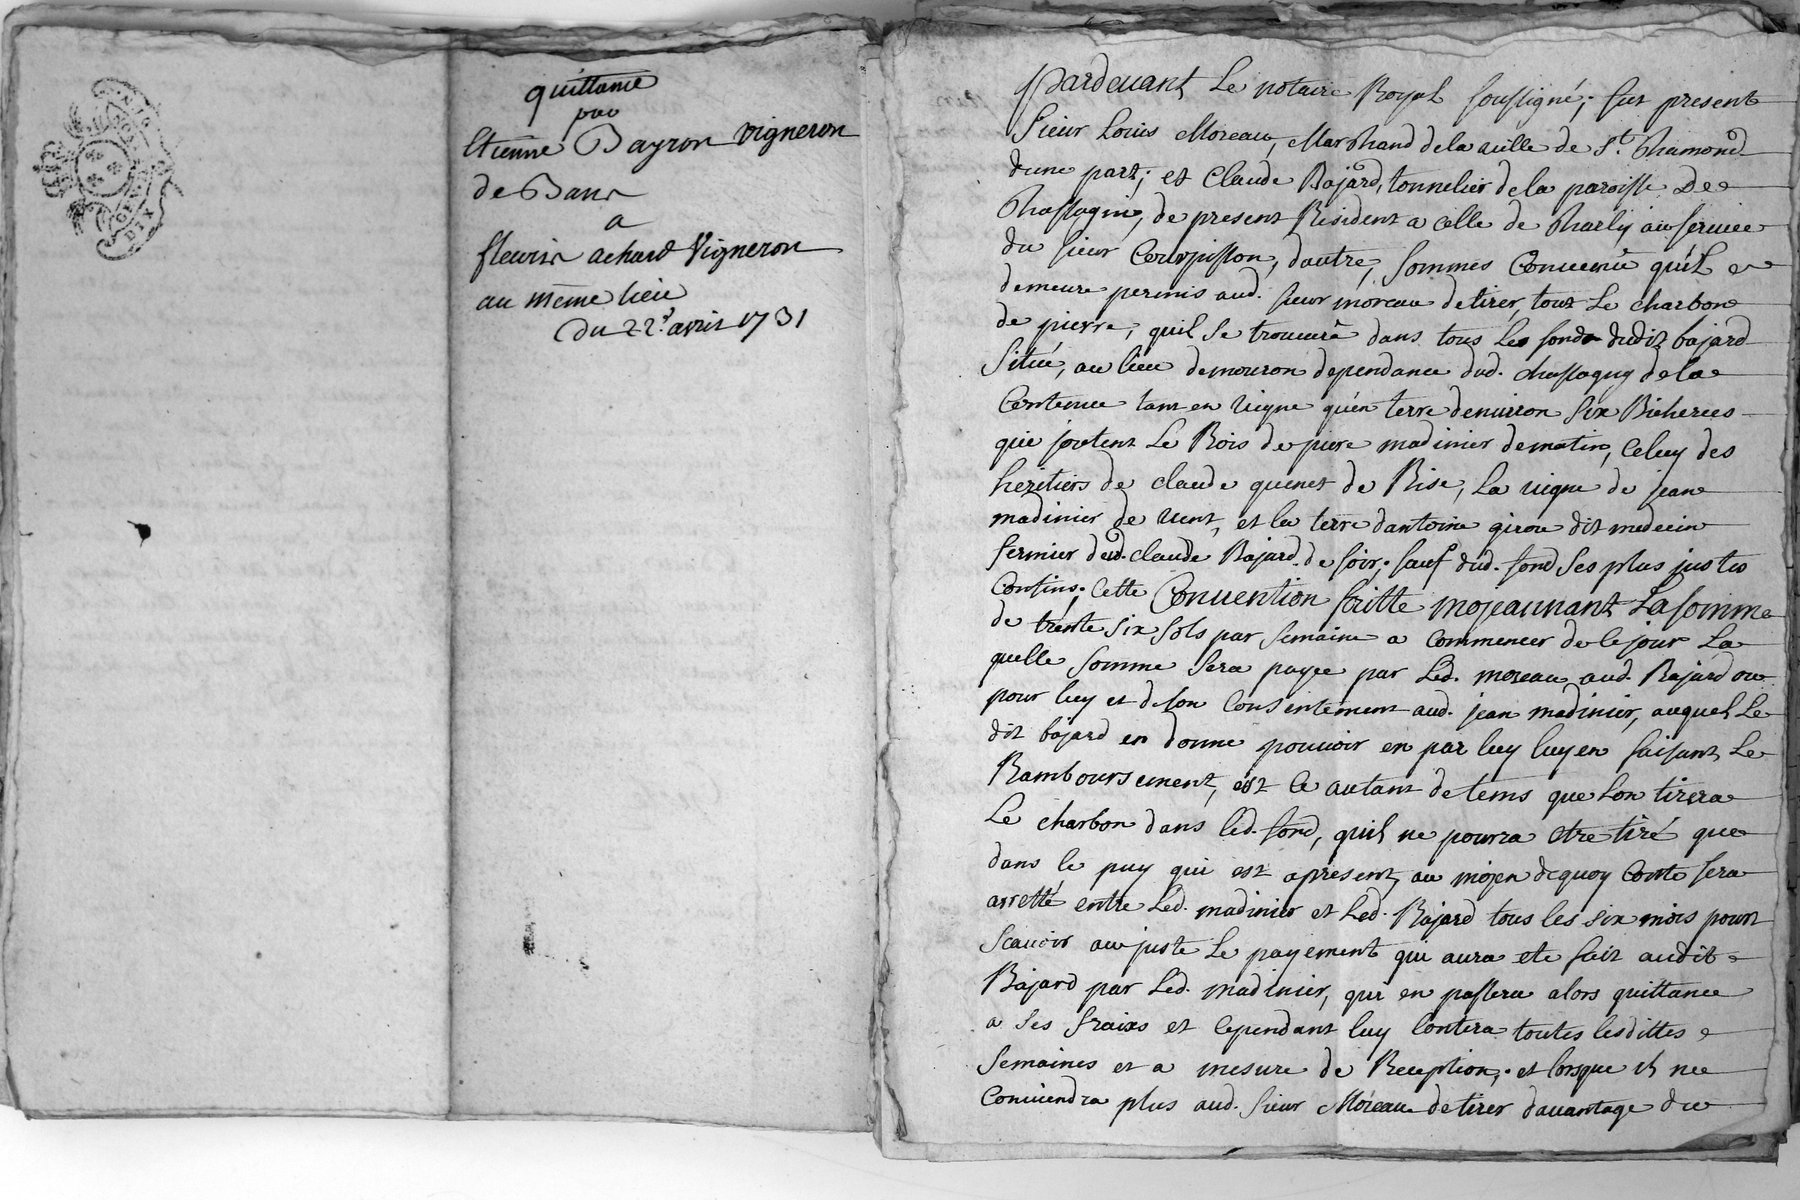 quittance
par
Etienne Bayron vigneron
de Bans
a
fleuris achard Vigneron
au même lieu
Du 22.e avril 1731
Pardevant Le notaire Royal soussigné; fut present
Sieur Louis Moreau, Marchand de la ville de St. Chamond
dune part; et Claude Bajard, tonnelier de la paroisse De
Chassagny, de present Resident a celle de Charly au service
du sieur, dautre, Sommes Convenû qu'il
demeure permis aud. sieur moreau de tirer, tout Le charbon
de pierre, quil se trouverà dans tous Les fonds dudit bajard
Situé, au lieu demouron dependance dud. chassagny de la
Contenue tant en vigne qu'en terre denviron six Bicherees
qui joutent Le Bois de piere madinier de matin, Celuy des
heritiers de claude quenet de Bise, La vigne de jean
madinier de vent, et la terre dantoine girou dit medecin
fermier dud. claude Bajard de soir; sauf dud. fond ses plus justes
Confins. Cette Convention faitte mojeannant La somme
de trente six sols par semaine a commencer de ce jour La
quelle somme sera payee par Led. moreau aud. Bajard ou
pour luy et de son Consentement aud. jean madinier, auquel Le
dit bajard en donne pouvoir en par luy luy en faisant Le
Ramboursement, est ce autant de tems que Lon tirera
Le charbon dans led. fond, quil ne pourra etre tiré que
dans le puy qui est apresent, au mojen dequoy Conte sera
arretté entre Led. madinier et Led. Bajard tous les six mois pour
Scavoir au juste Le payement qui aura ete fait audit
Bajard par Led. madinier, qui en passera alors quittance
a ses fraixs et Cependant luy Contera toutes lesdittes
Semaines et a mesure de Reception; et lorsque il ne
Conviendra plus aud. Sieur Moreau de tirer davantage du